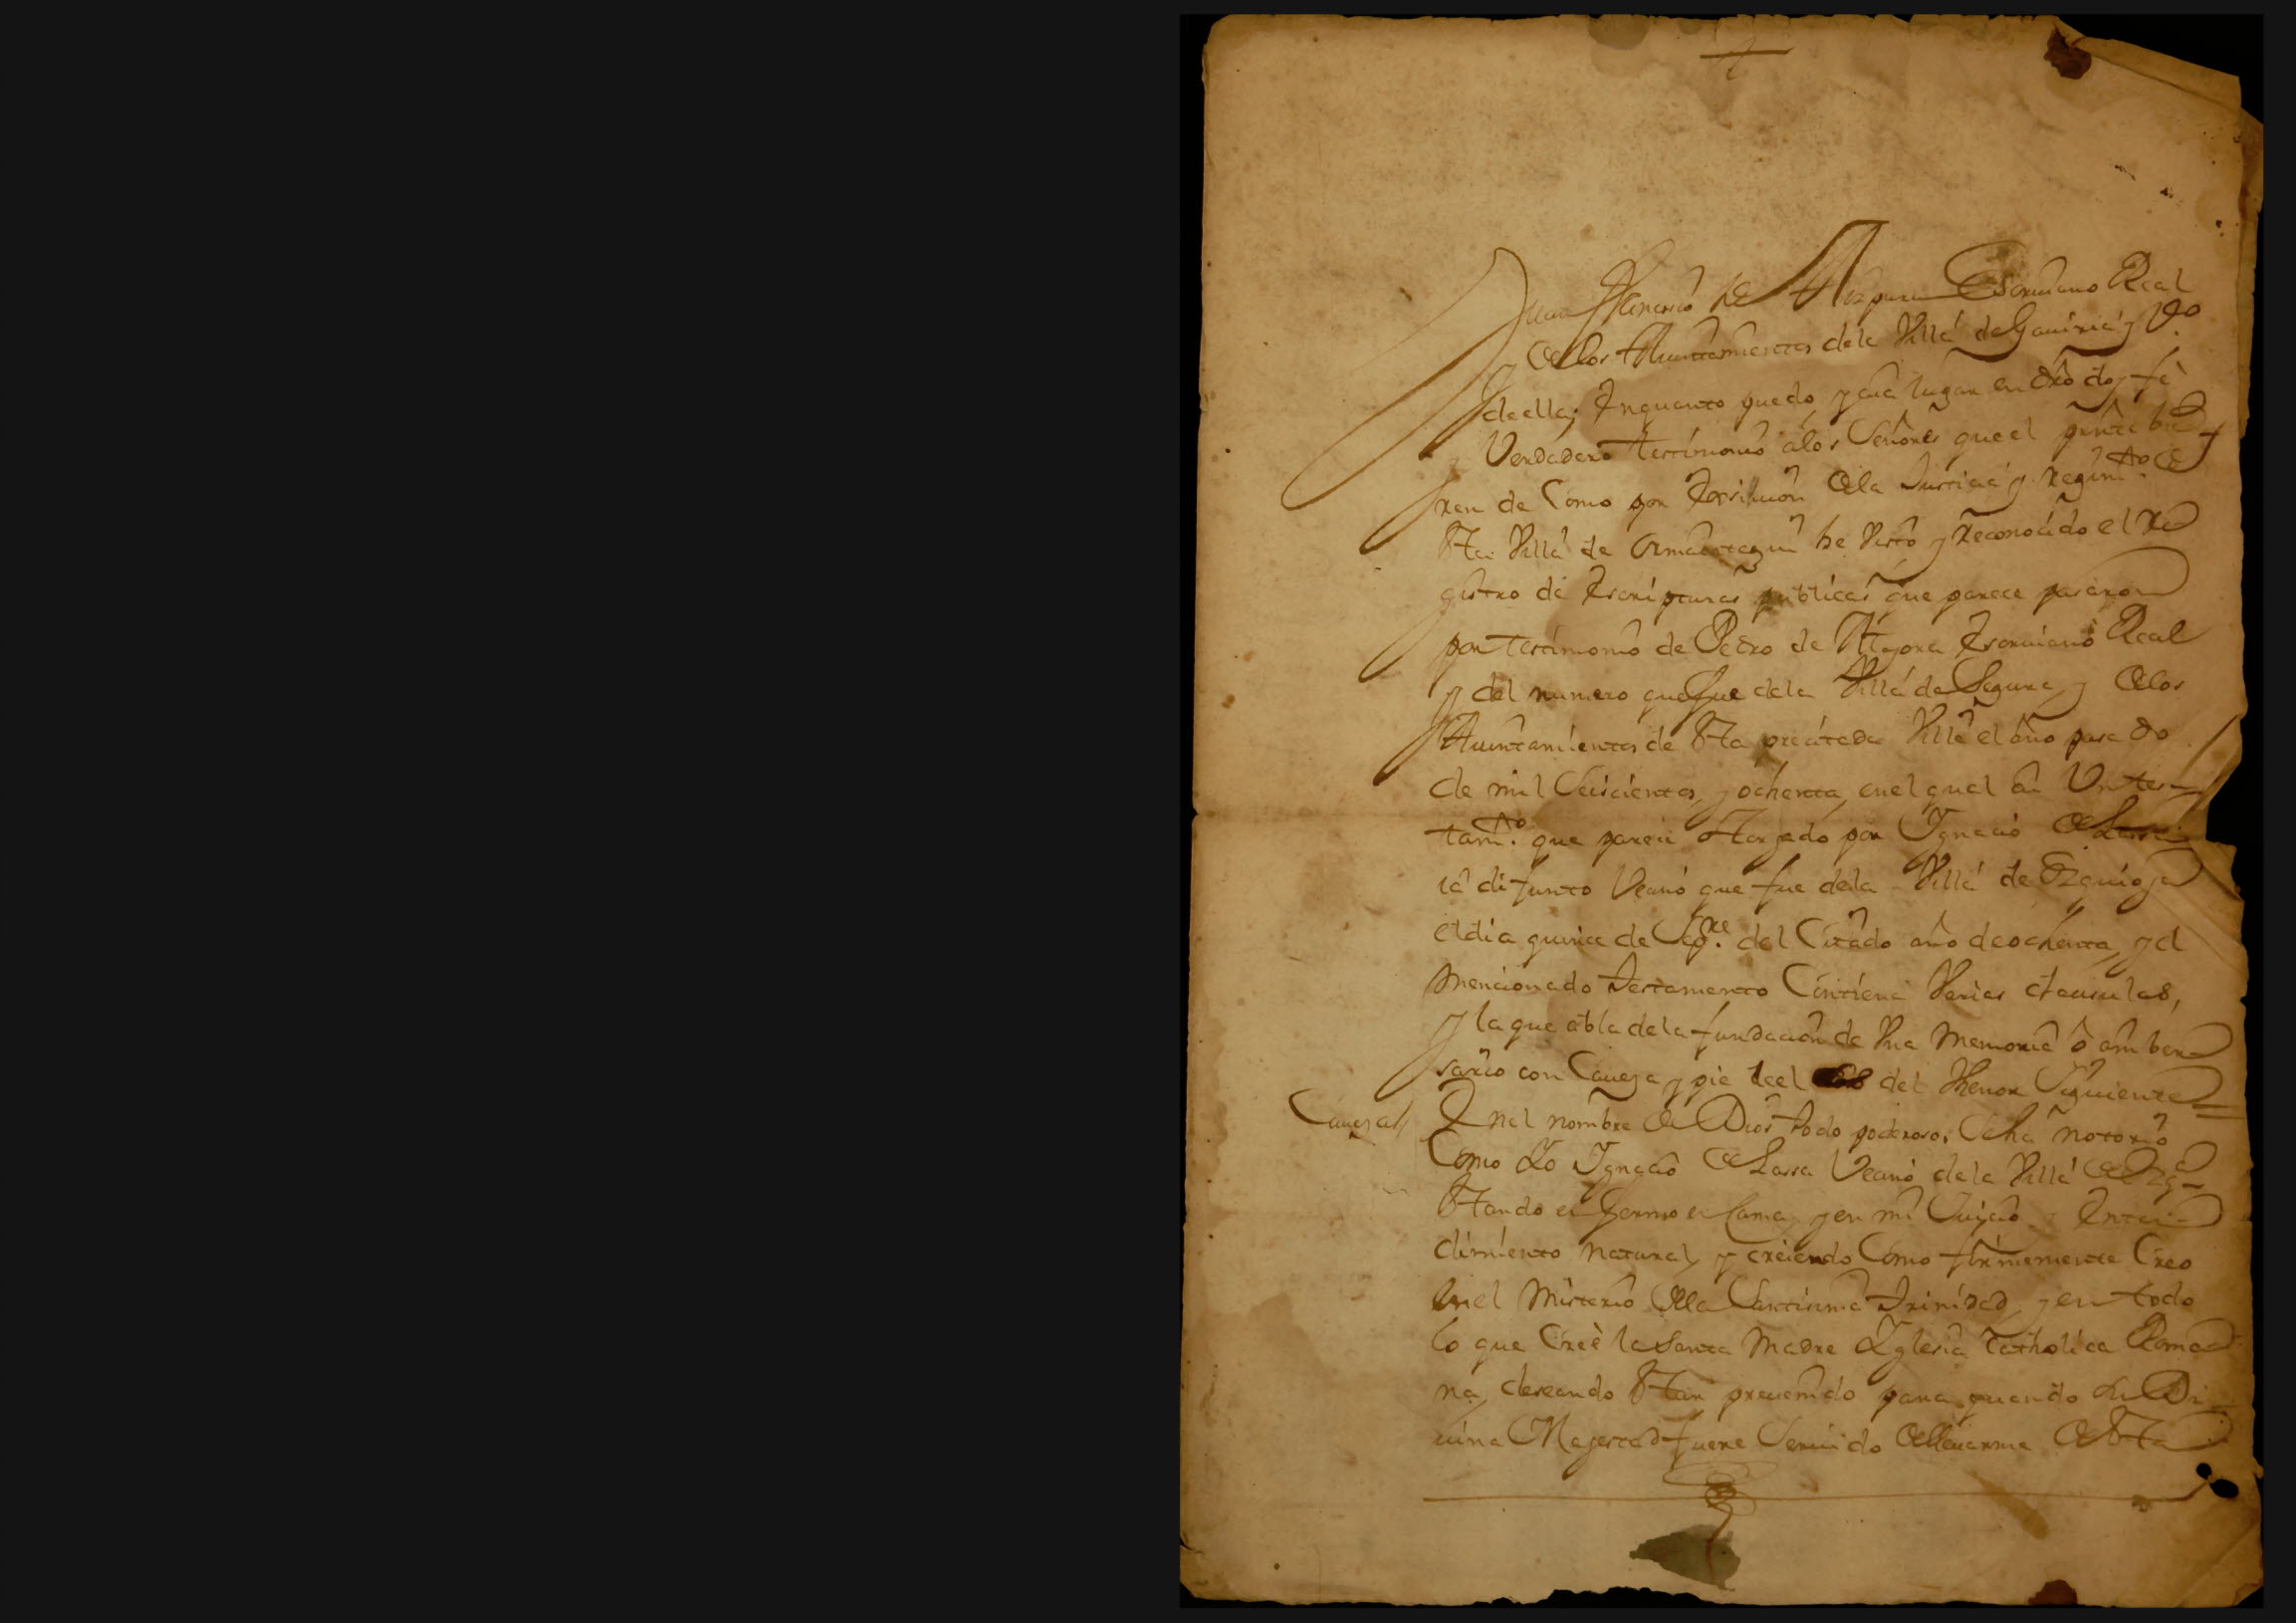 Juan Francisco de Aizpuru Escriuano Real
y de los Aiuntamientos dela Villa de Gauiria, y Vº
de ella; Enquanto puedo, y ha lugar en dró doy fé
y Verdadero testimonio álos Señores que el press.te bie
ren de Como por Exsiuicion dela Justicia y regim.to de
Sta Villa de Ormaiztegui he Visto y Reconocido el Re
gistro de Escripturas publicas que parece pasaron
por testimonio de Pedro de Ategora Escriuano Real
y del numero que fue dela Villa de Segura, y delos
Aiuntamientos de Sta precitada Villa el año pasado
de mil Seiscientos, y ochenta, enel qual ai Un tes-
tam.to que pareze Otorgado por Ignacio de
ia difunto Vecino que fue dela Villa de Ezquioga
el dia quince de Sep.re del Citado año de ochenta, y el
mencionado Testamento Contiene Varias clausulas,
y la que abla dela fundacion de Vna Memoria ô aniber
sario con Caueza y pie del thenor Siguiente =
Caueza // Enel nombre de Dios todo poderoso, Seha notorio
Como Yo Ignacio de Larra Vecino dela Villa de Ezq.a
Stando enfermo en Cama, y en mi Juizio y Enten
dimiento natural, y creiendo Como firmemente Creo
enel Misterio dela Santisima Trinidad, y en todo
lo que Creè la Santa Madre Yglesia Catholica Roma
na, deseando Star preuenido para quando Su Di
uina Magestad fuere Seruido de lleuarme de Sta